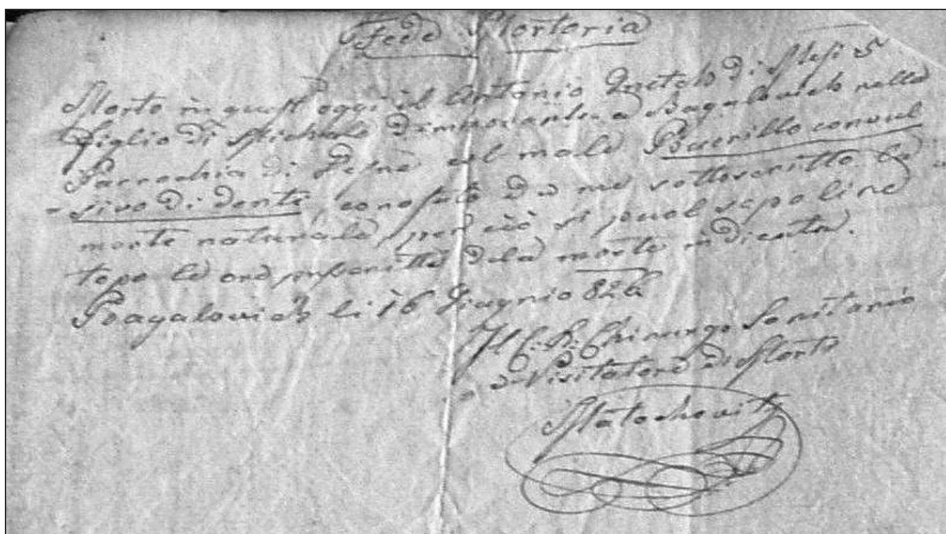 Fede Mortoria
Morto in quest'oggi il Antonio di Mesi 5
figlio di Michele Dimmorante a Bagalovich nella
Parrochia di del male Puerille convul
sivo di dente, conosciuto da me sottoscritto la
morte naturale, per ciò si puol sepolire
topo le ore prescritte dela morte indicata.
Pragalovich li 16 Giugnio 826
Il C: R: Chirurgo Sanitario
e Visitatore di Morti